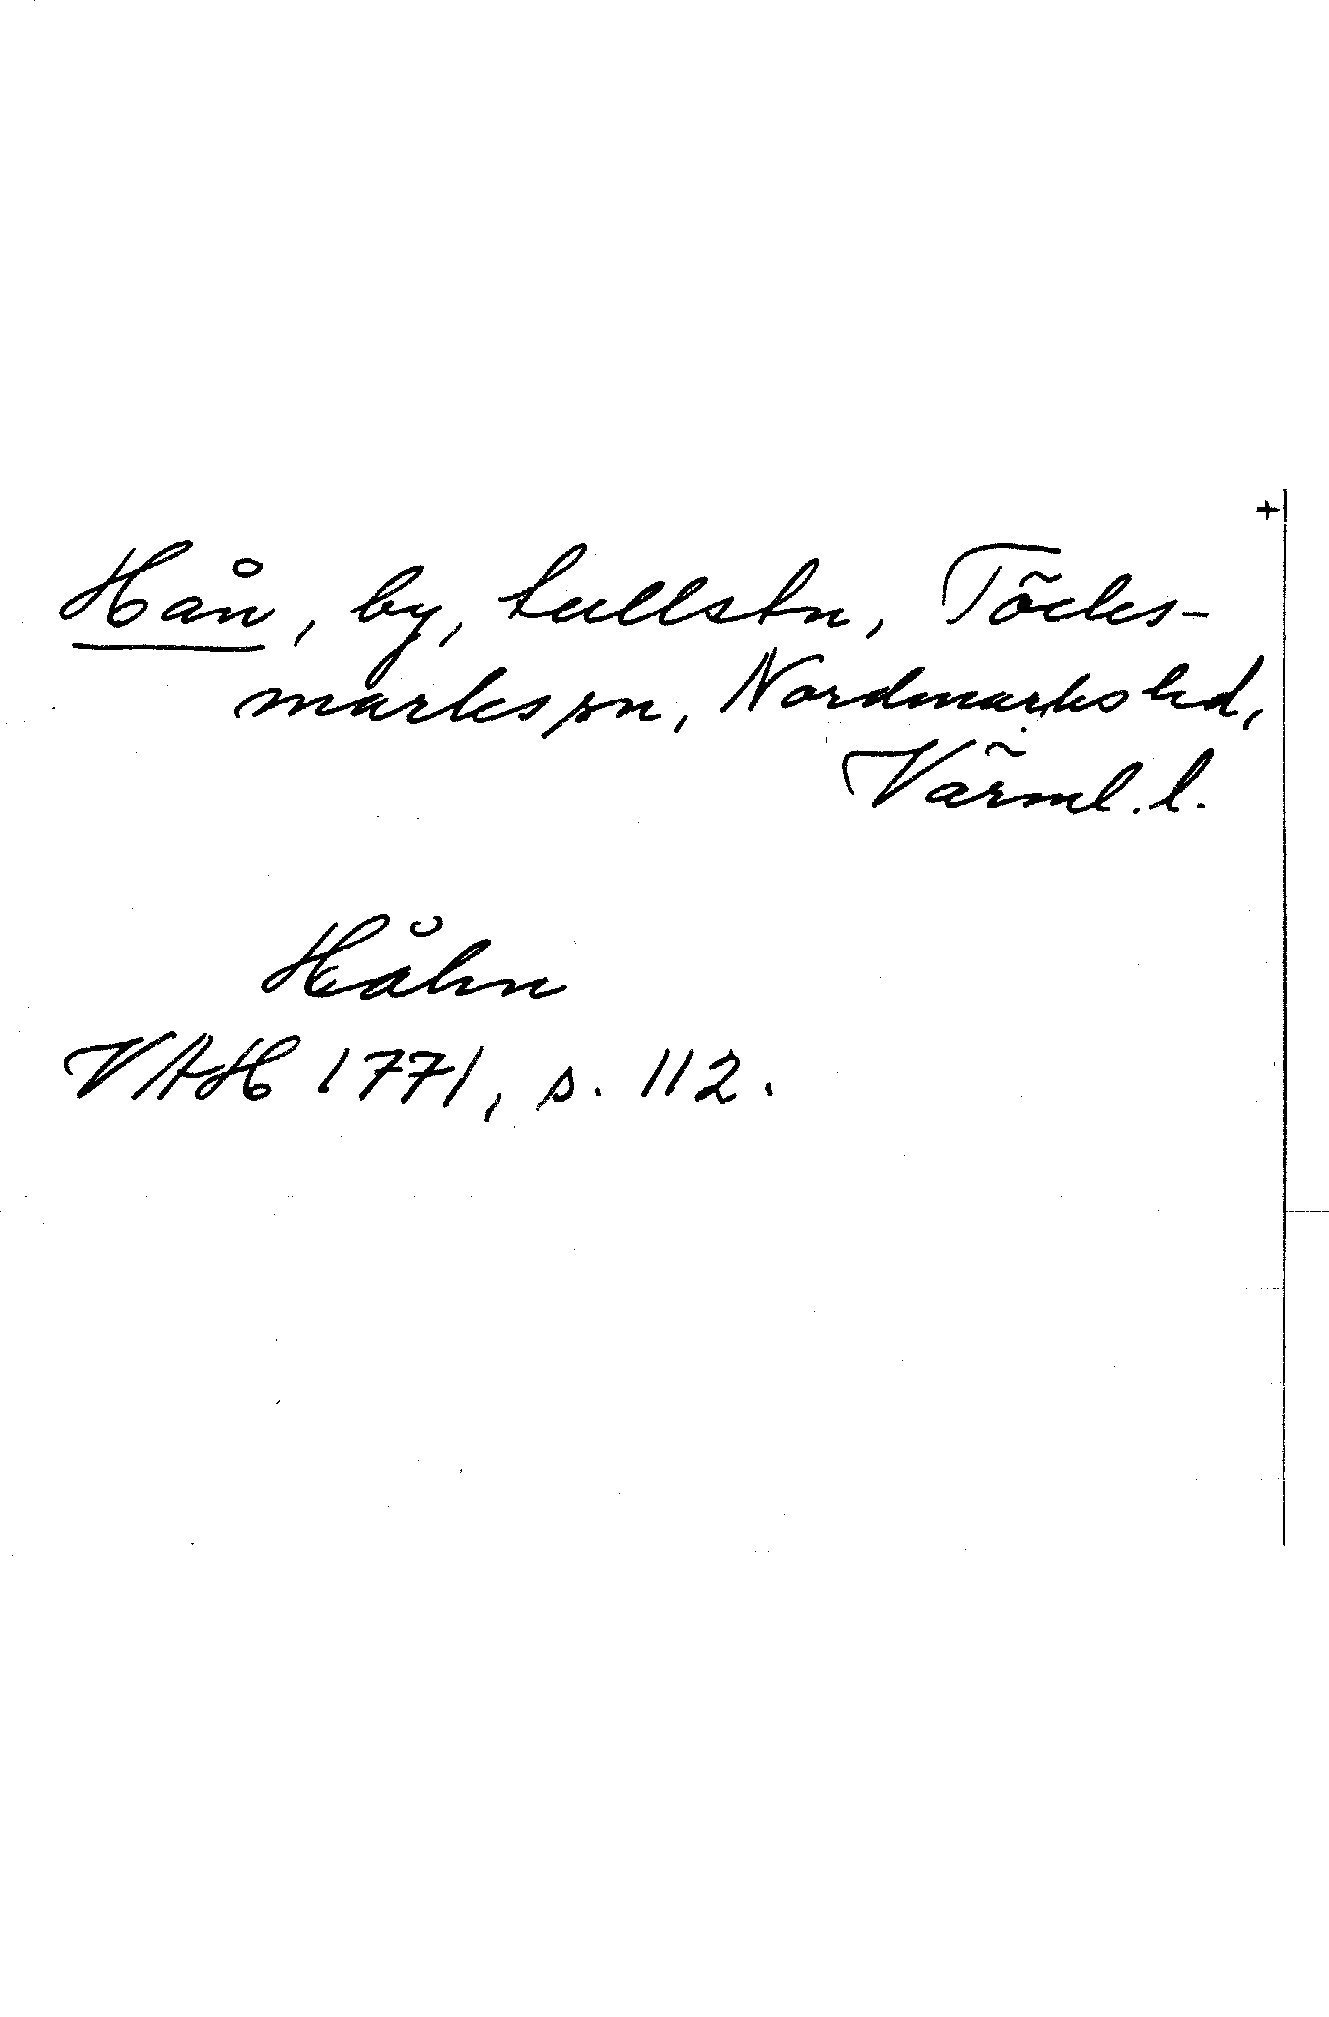 +
Hån, by, tullstn, Töcks-
marks sn, Nordmarks hd,
Värml. l.
Håhn
VAH 1771, s. 112.